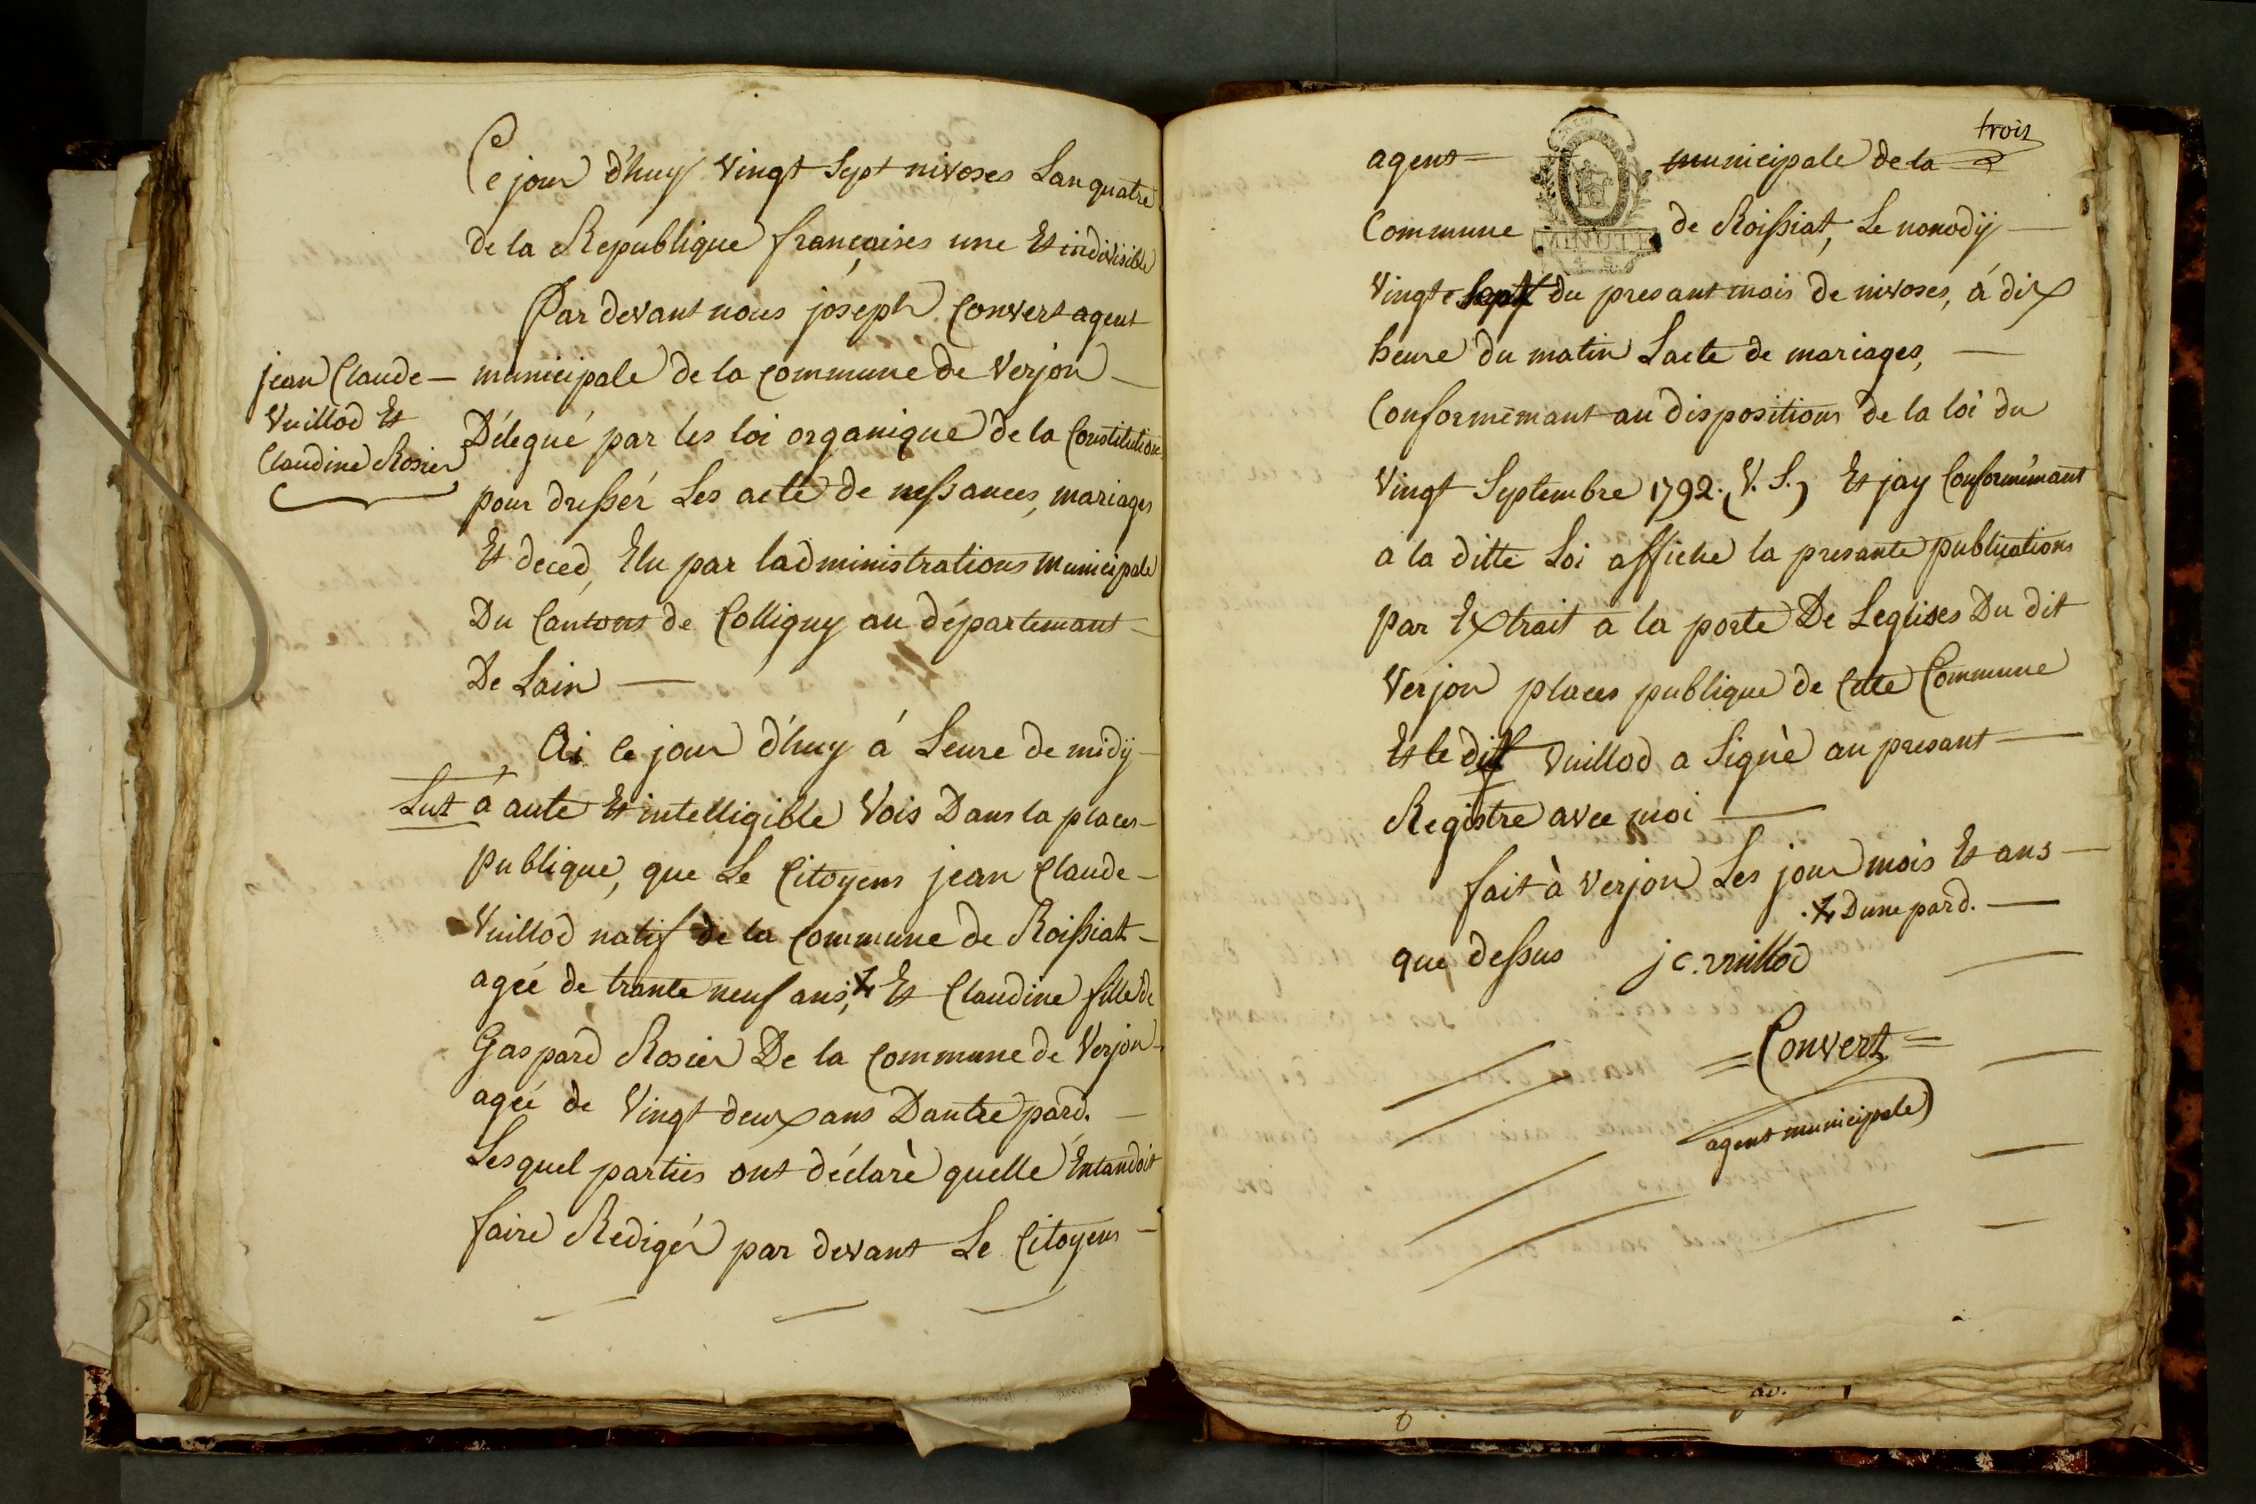 Ce jour d'huy vingt sept nivoses Lan quatre
de la Republique françaises une Et indivisible
Par devant nous joseph Convert agent
jean Claude
Vuillod Et
Claudine Rosier
municipale de la commune de Verjon
Délegué par lés loi organique de la Constitution
pour dresser Les acte de nessances, mariages
Et deced, Elu par ladministrations municipale
Du Cantons de Colligny au départemant
De Lain
Ai ce jour d'huy á Leure de midÿ
Lut á aute Et intelligible Vois Dans la places
publique, que Le Citoyens jean Claude
Vuillod natif de la commune de Roissiat
agée de trante neuf ans, Et Claudine fille de
Gaspard Rosier De la commune de Verjon
agéé de Vingt deux ans Dautre pard.
Lesquel parties ont déclaré quelle Entandoit
faire Redigér par devant Le Citoyens
trois
agent municipale de la
Commune de Roissiat, Le nonodÿ
MINUTE
Vingt sept du presant mois de nivoses, á dix
heure du matin Lacte de mariages,
Conformémant au dispositions de la loi du
Vingt Septembre 1792. (V. S.) Et jay Conformémant
a la ditte Loi affiche la presante publications
par Extrait a la porte De Leglises Du dit
Verjon places publique de Cette Commune
Et le dit Vuillod a Signè au presant
Registre avec moi
fait à Verjon Les jour mois Et ans
Dune pard.
que dessus jc. vuillod
= Convert =
agent municipale